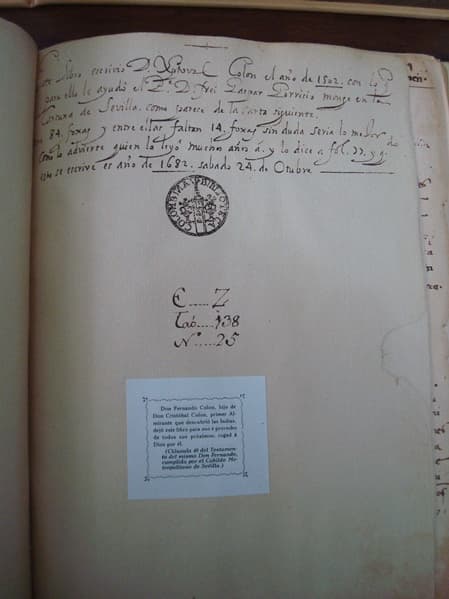 Este Libro escrivio D. Xptoval Colon el año de 1502. con lo q
para ello le ayudó el Pe. D. frei Gaspar Gorricio monge en la
Cartuxa de Sevilla. como parece de la carta siguiente.
84. foxas y entre ellas faltan 14. foxas sin duda seria lo mejor de
como lo advierte quien lo leyó muchos años á. y lo dice a fol. 77. y
esto se escrive es año de 1682. sabado 24. de Otubre
BIBLIOTECA COLOMBINA
E ..... Z
Tab ..... 138
N° ..... 25
Don Fernando Colon, hijo de
Don Cristóbal Colon, primer Al-
mirante que descubrió las Indias,
dejó este libro para uso é provecho
de todos sus próximos, rogad á
Dios por él.
(Cláusula 49 del Testamen-
to del mismo Don Fernando,
cumplida por el Cabildo Me-
tropolitano de Sevilla.)